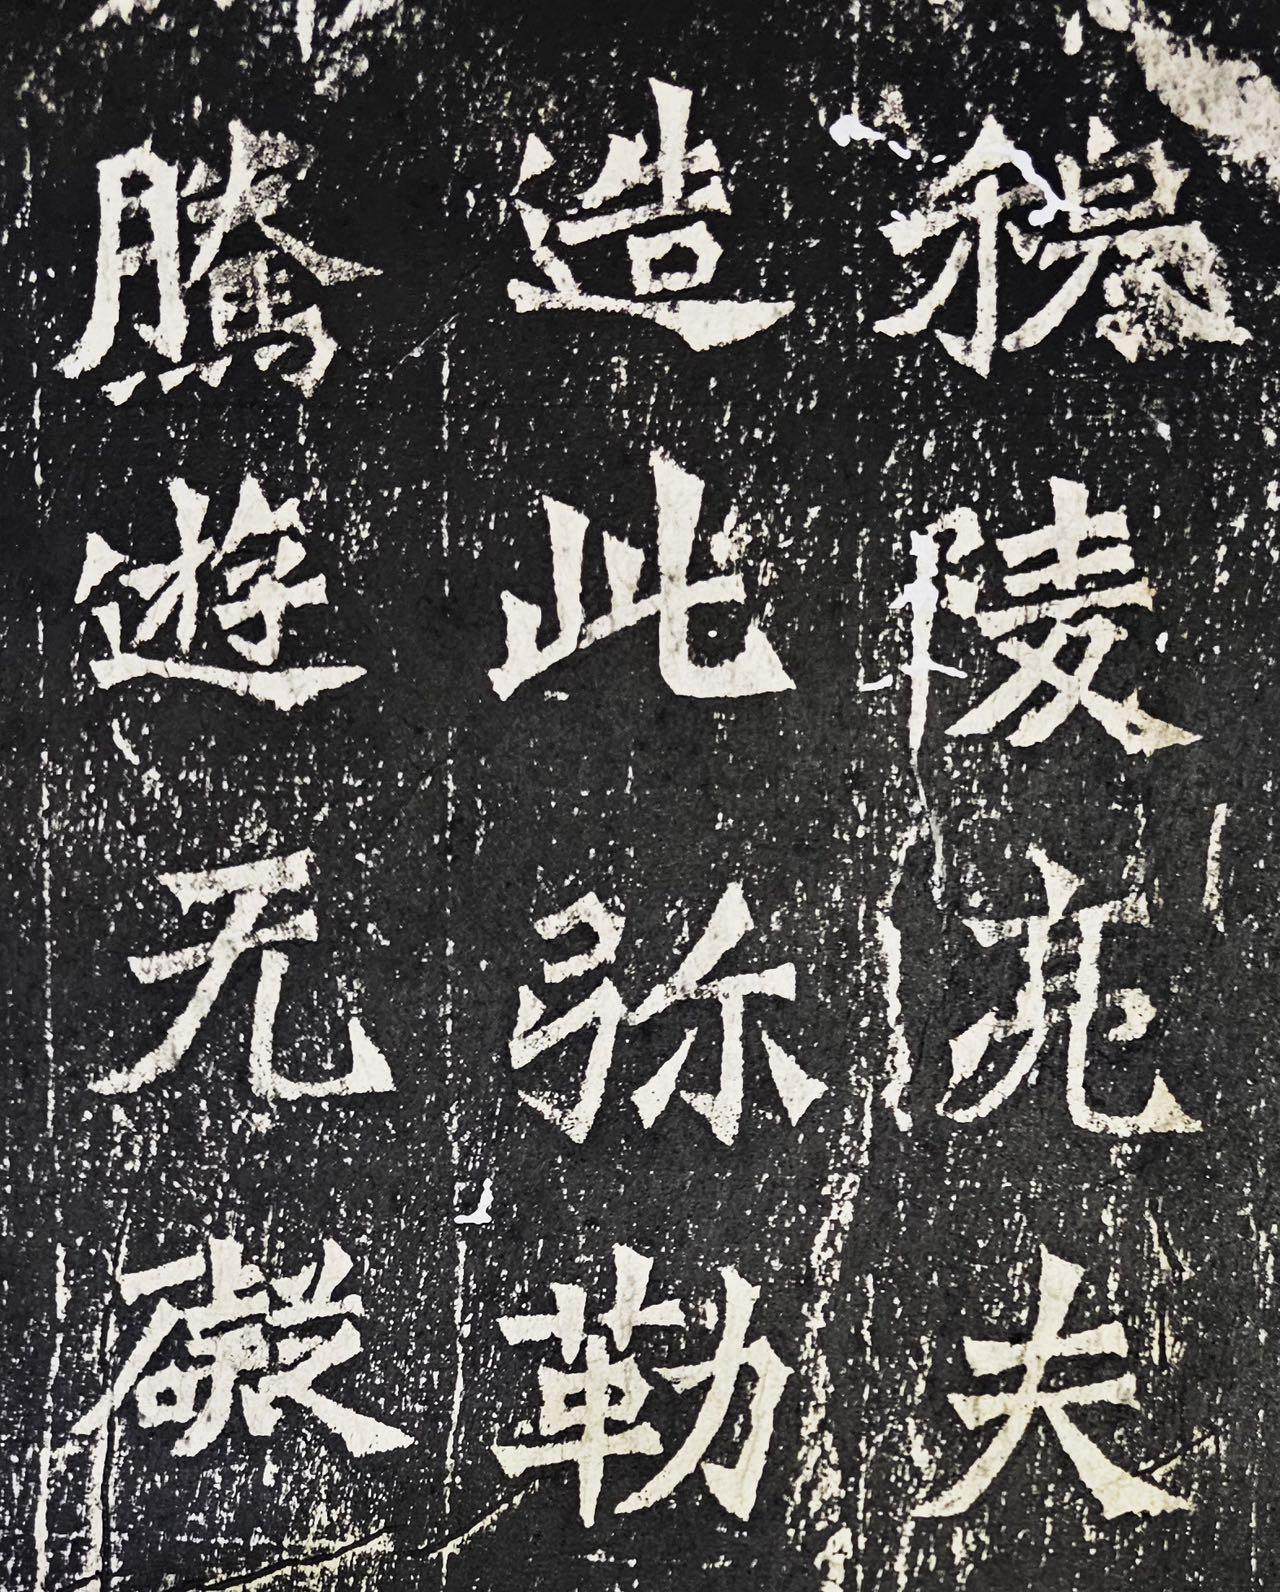 穆陵亮夫
造此弥勒
騰遊无礙